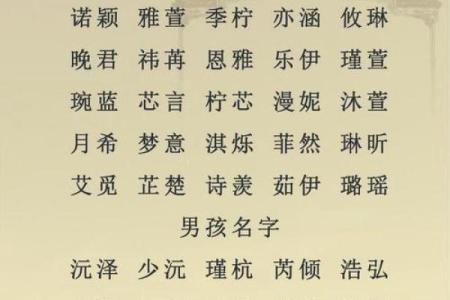 诺颖 雅萱 季柠 亦涵 攸琳
晚君 祎苒 恩雅 乐伊 瑾萱
琬蓝 芯言 柠芯 漫妮 沐萱
月希 梦意 淇烁 菲然 琳昕
艾觅 芷楚 诗羡 茹伊 璐瑶
男孩名字
沅泽 少沅 瑾杭 芮倾 浩弘